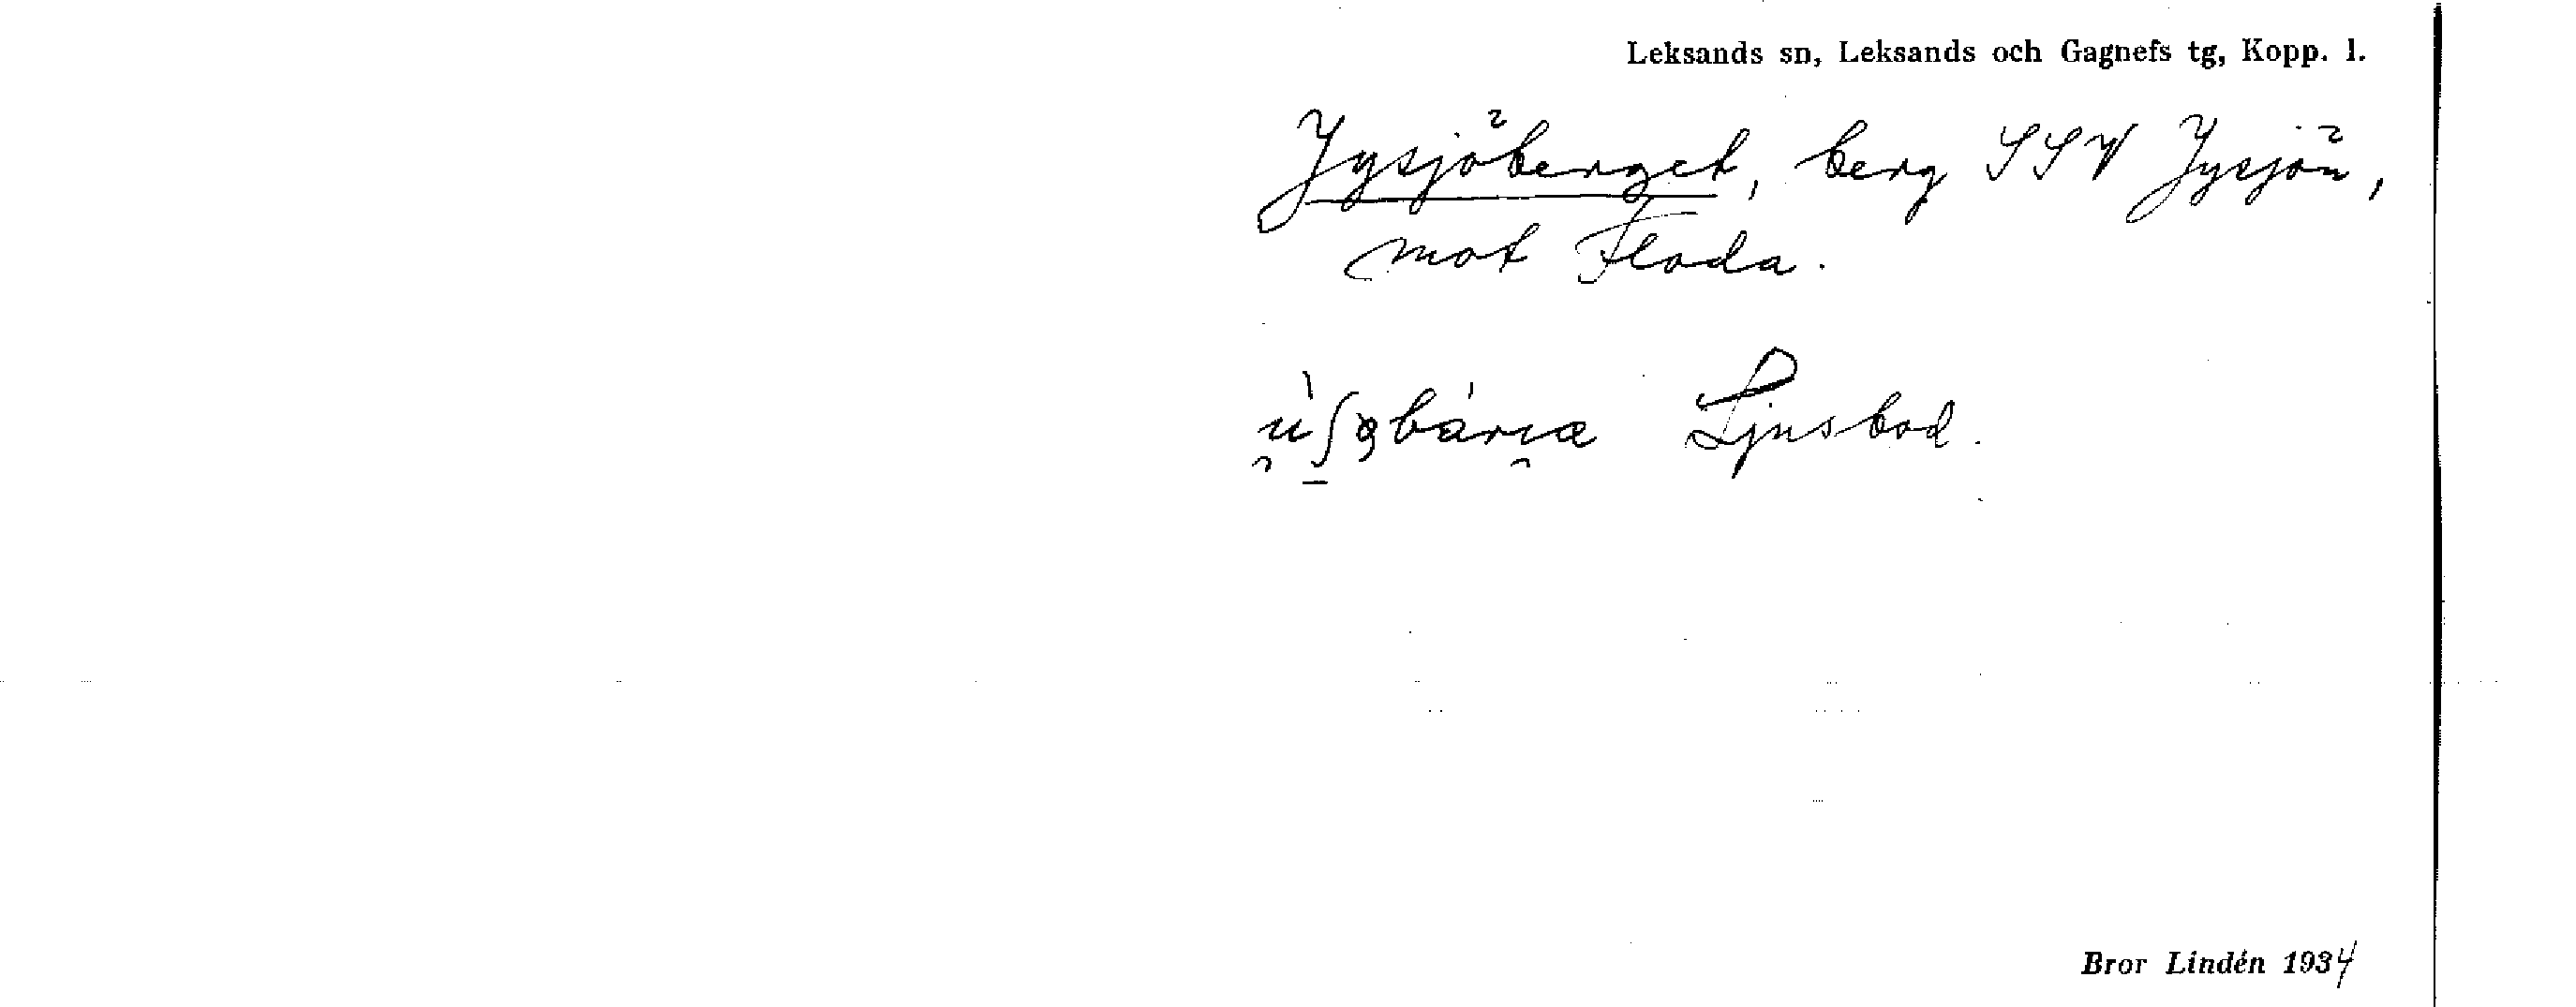 Leksands sn, Leksands och Gagnefs tg, Kopp. l.
Jysjöberget, berg SSV Jysjön,
mot Floda.
Ljusbod.
Bror Lindén 1934